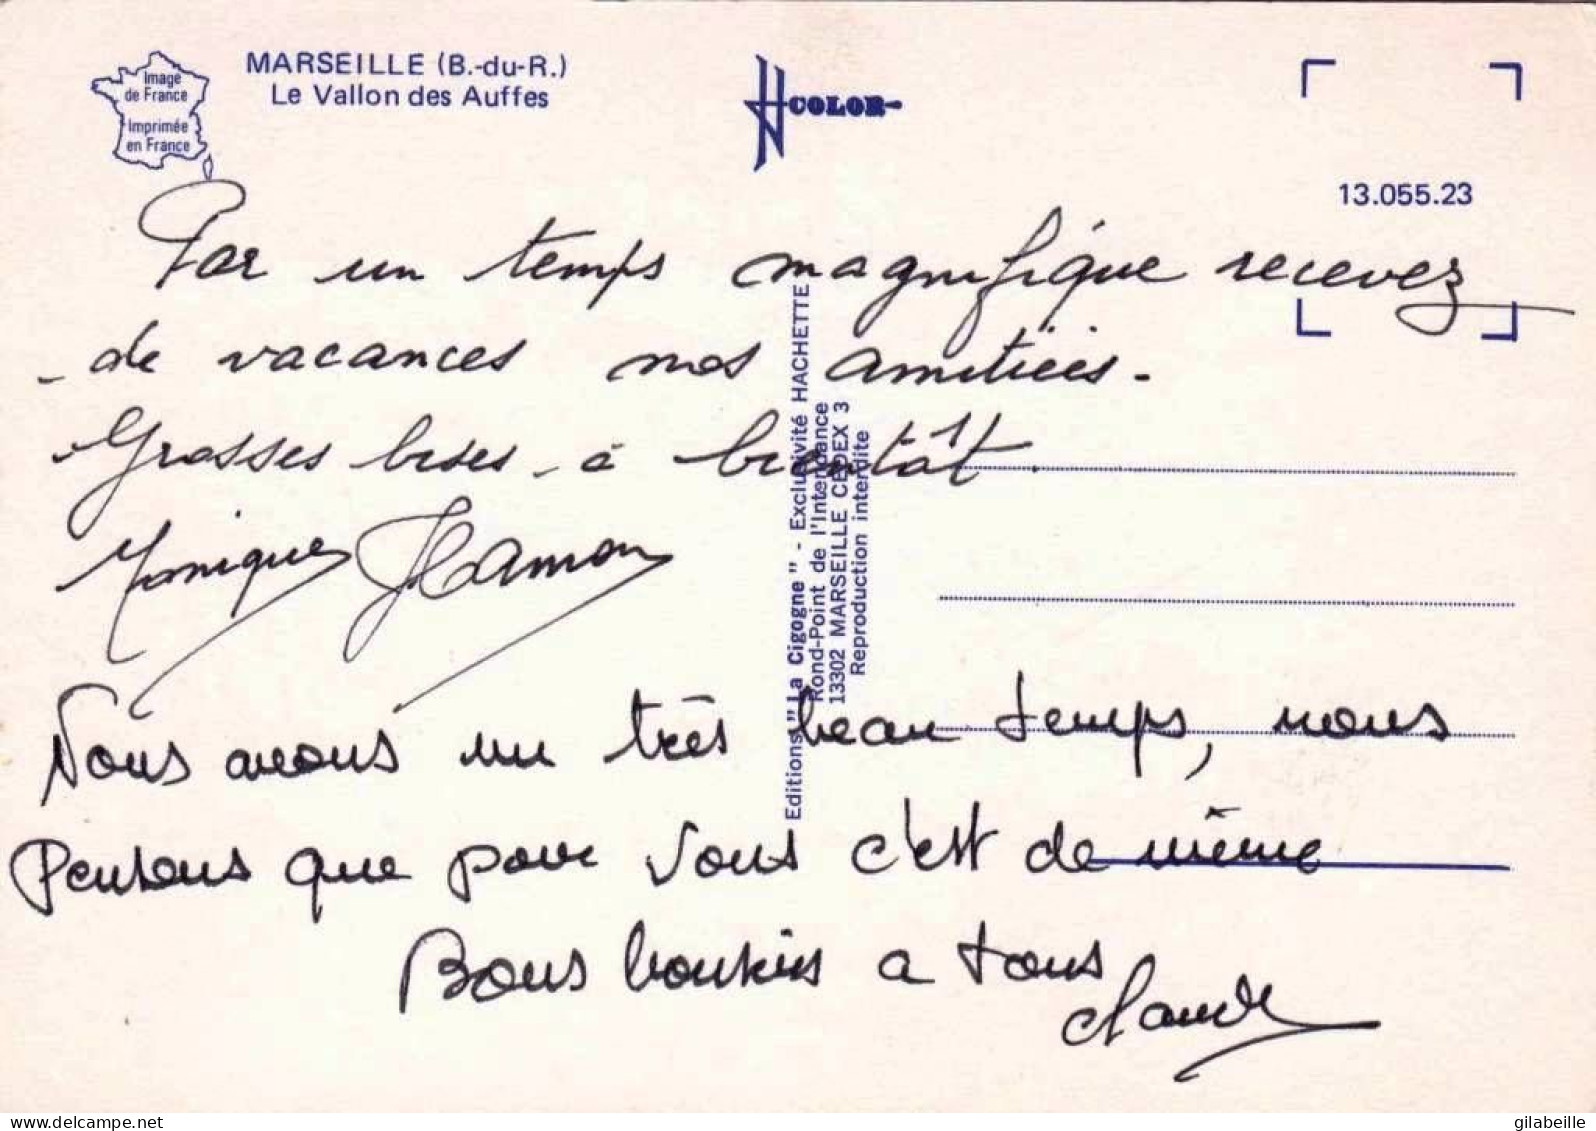 MARSEILLE (B.-du-R.)
Le Vallon des Auffes
Image
de France
Imprimée
en France
COLOR
13.055.23
Par un temps magnifique recevez
de vacances nos amitiées.
Grosses bises à bientôt.
Monique Hamon
Nous avons un très beau temps, nous
Pensons que pour vous c'est de même
Bons a tous
Claude
Editions "La Cigogne" - Exclusivité HACHETTE
Rond-Point de l'Intendance
13302 MARSEILLE CEDEX 3
Reproduction interdite
gilabeille